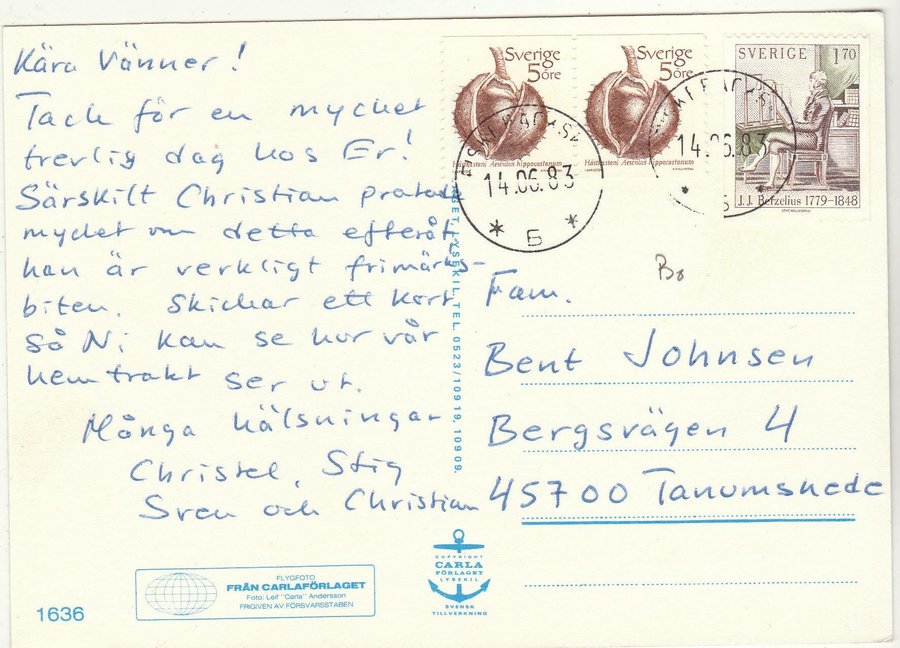 Kära Vänner!
Tack för en mycket
trevlig dag hos Er!
Särskilt Christian pratade
mycket om detta efteråt
han är verkligt frimärks-
biten. Skickar ett kort
så Ni kan se hur vår
hemtrakt ser ut.
Många hälsningar
Christel, Stig
Sven och Christian
Sverige
5 öre
Hästkastanj Aesculus hippocastanum
Sverige
5 öre
Hästkastanj Aesculus hippocastanum
SVERIGE 170
J. J. Berzelius 1779-1848
14.06.83
14.06.83
Bo
Fam.
Bent Johnsen
Bergsvägen 4
45700 Tanumshede
LYSEKIL, TEL. 0523/10919, 10909.
COPYRIGHT
CARLA
FÖRLAGET
LYSEKIL
SVENSK
TILLVERKNING
FLYGFOTO
FRÅN CARLAFÖRLAGET
Foto: Leif "Carla" Andersson
FRIGIVEN AV FÖRSVARSSTABEN
1636